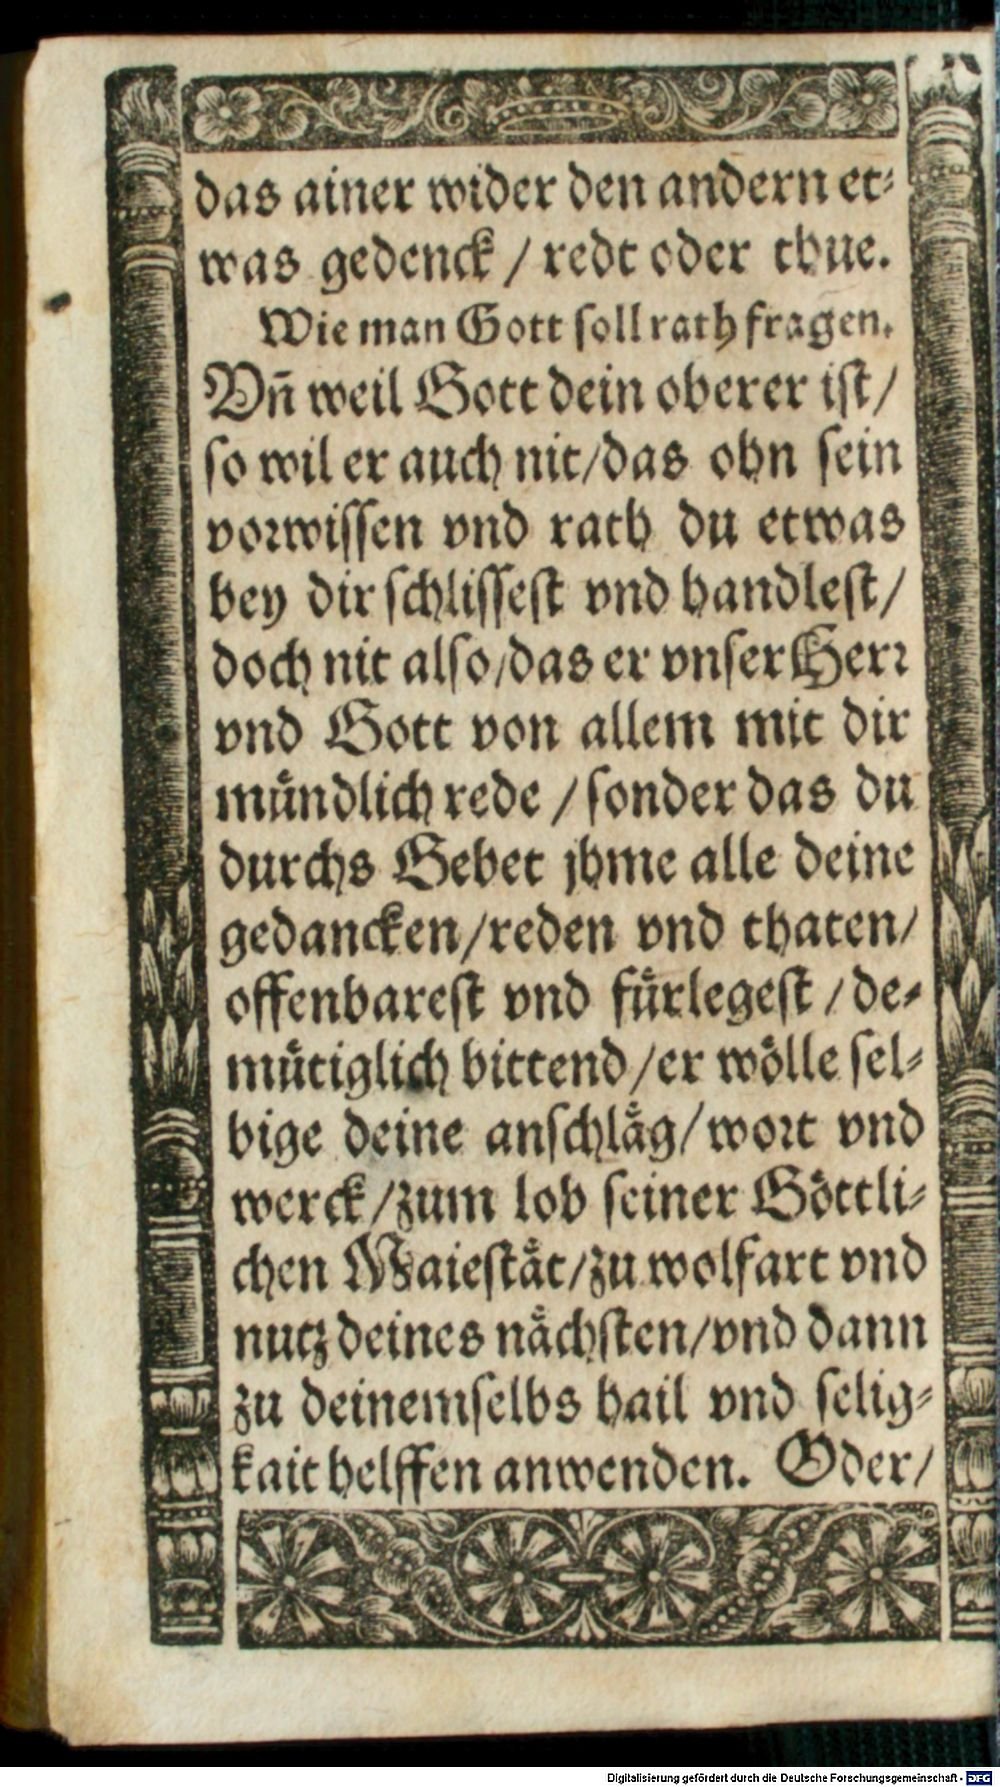 das ainer wider den andern et⸗
was gedenck / redt oder thue.
Wie man Gott soll rath fragen.
Vñ weil Gott dein oberer ist/
so wil er auch nit/das ohn sein
vorwissen vnd rath du etwas
bey dir schlissest vnd handlest/
doch nit also/das er vnser Herr
vnd Gott von allem mit dir
mündlich rede / sonder das du
durchs Gebet jhme alle deine
gedancken/reden vnd thaten/
offenbarest vnd fürlegest / de⸗
mütiglich bittend/er wölle sel⸗
bige deine anschläg/wort vnd
werck/zum lob seiner Göttli⸗
chen Maiestät/zu wolfart vnd
nutz deines nächsten/vnd dann
zu deinemselbs hail vnd selig⸗
kait helffen anwenden. Oder/
Digitalisierung gefördert durch die Deutsche Forschungsgemeinschaft - DFG